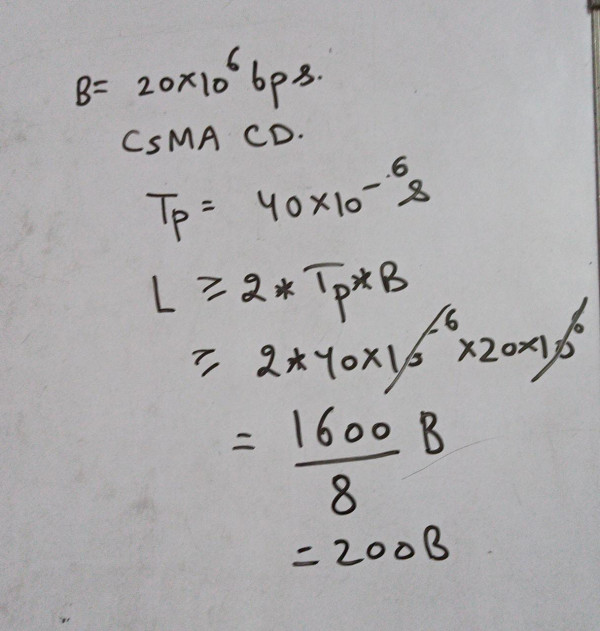 B= 20×10⁶ bps.
CSMA CD.
Tp = 40×10⁻⁶ s
L ≥ 2 * Tp * B
≥ 2*40×10⁻⁶ ×20×10⁶
= 1600/8 B
= 200B